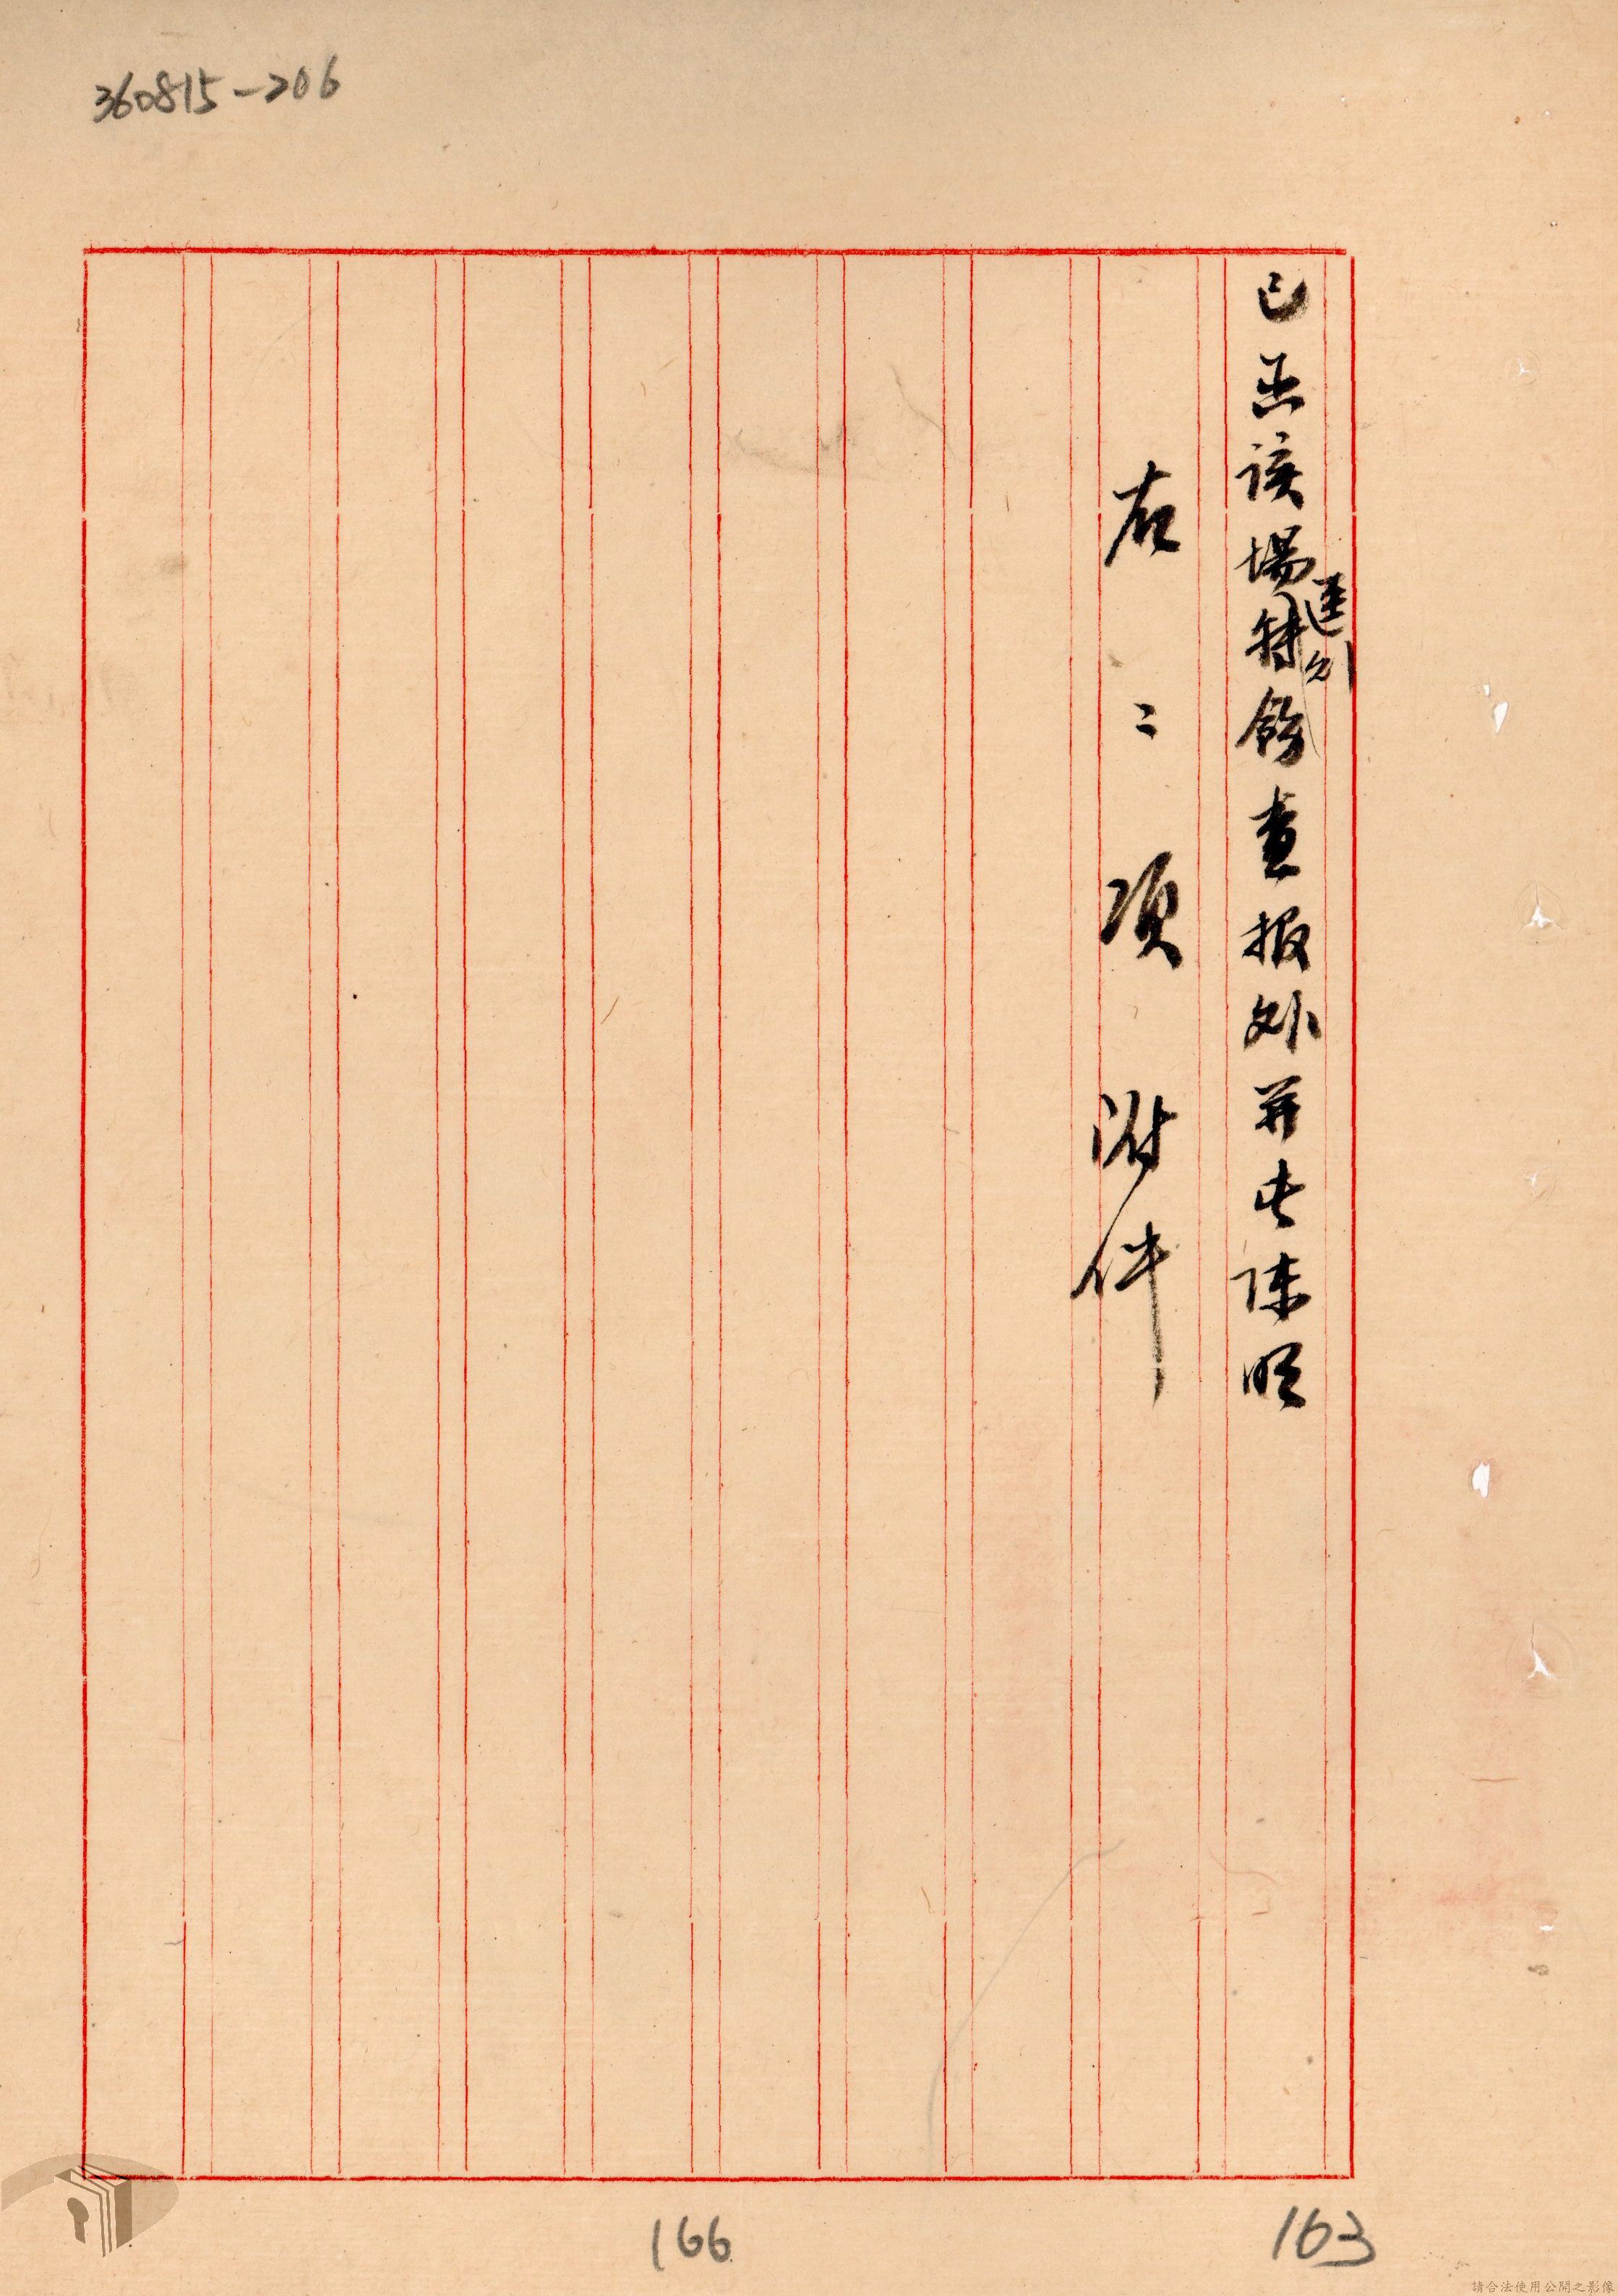 360815-206
已函該場轉飭查報外并此陳明
逕行
右二項附件
166
163
請合法使用公開之影像